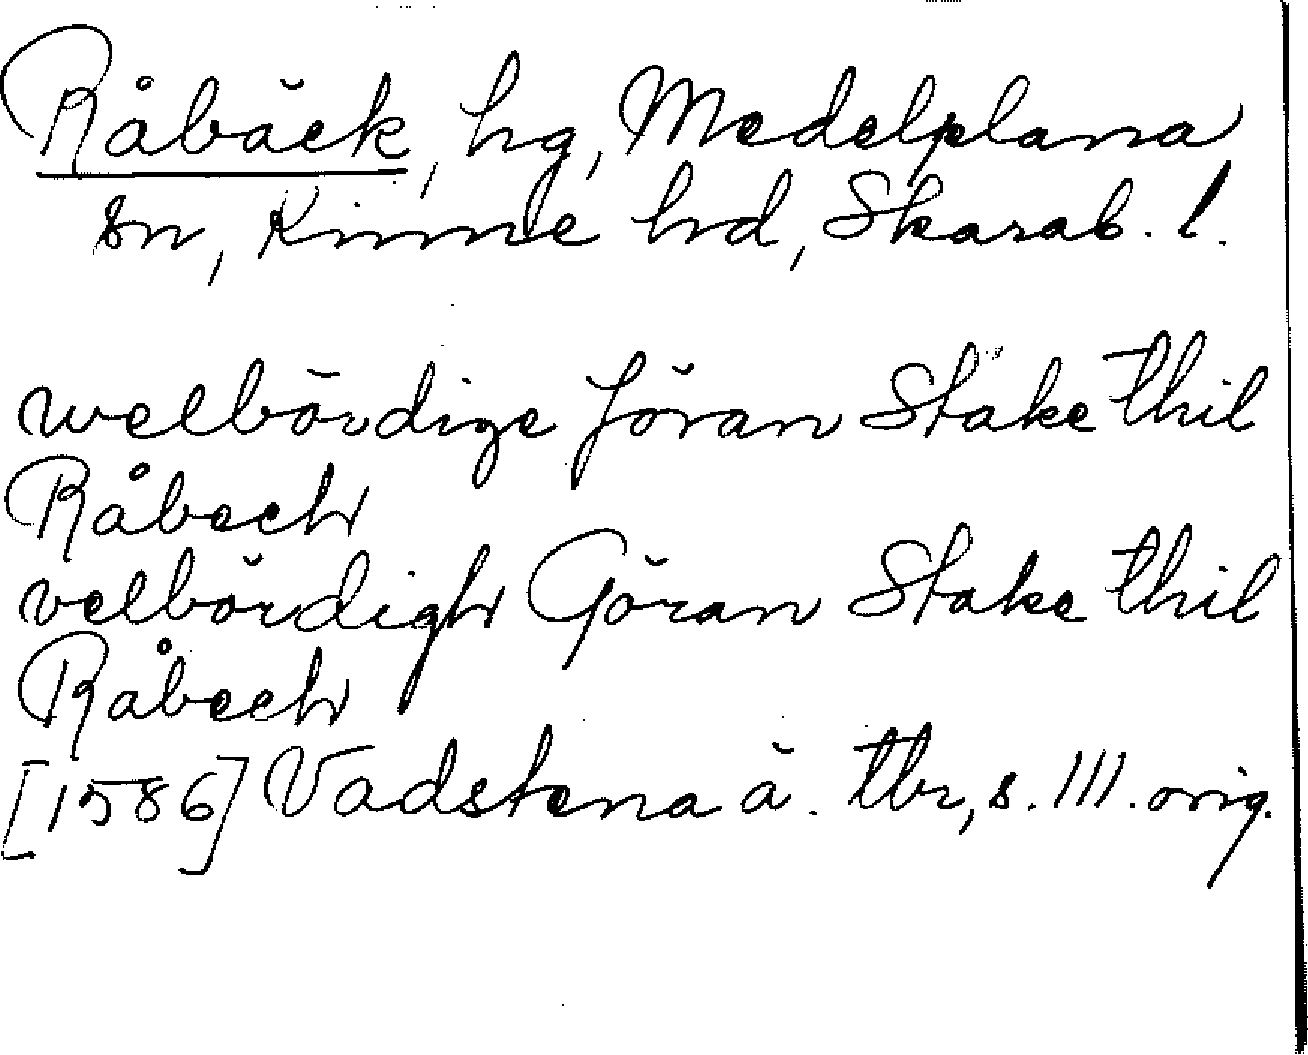 Råbäck, hg, Medelplana
sn, Kinne hd, Skarab. l.
welbördige Jöran Stake thil
Råbech
velbördigh Göran Stake thil
Råbech
[1586] Vadstena ä. tbr, s. 111. orig.